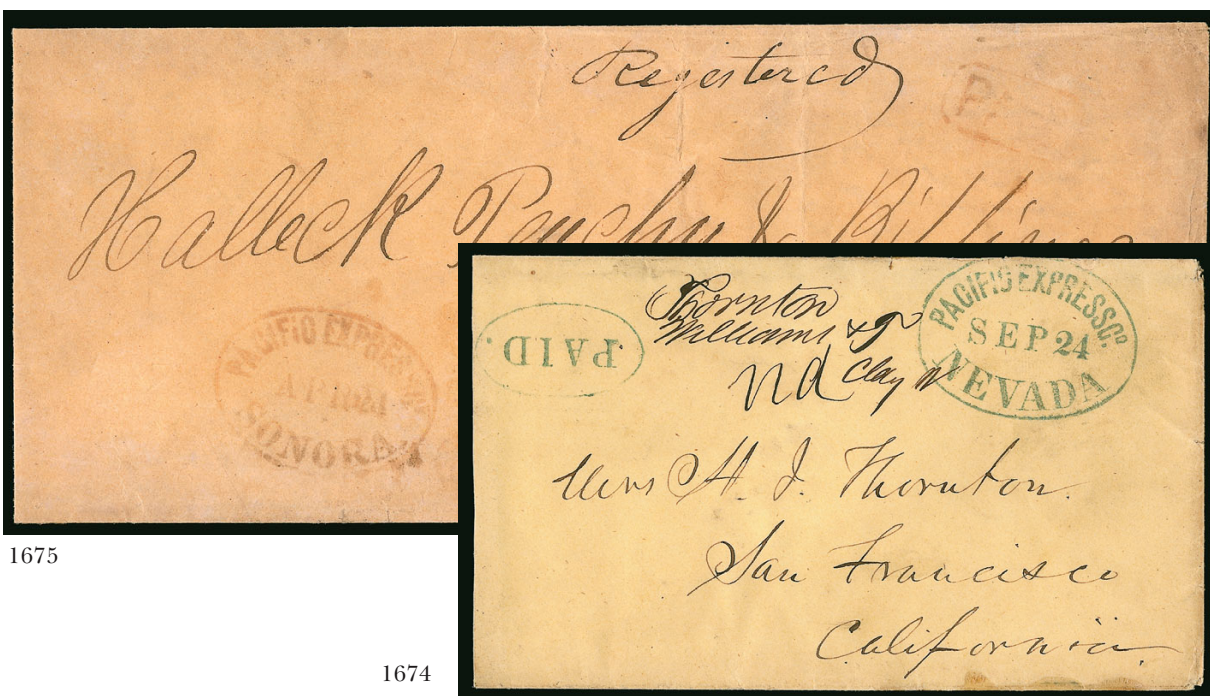 Registered
Halleck Peachy & Billings
PACIFIC EXPRESS CO
SONORA
PAID.
Thornton
Williams &
Clay
PACIFIC EXPRESS Cº
SEP 24
NEVADA
Mrs H. I. Thornton.
San Francisco
California.
1675
1674